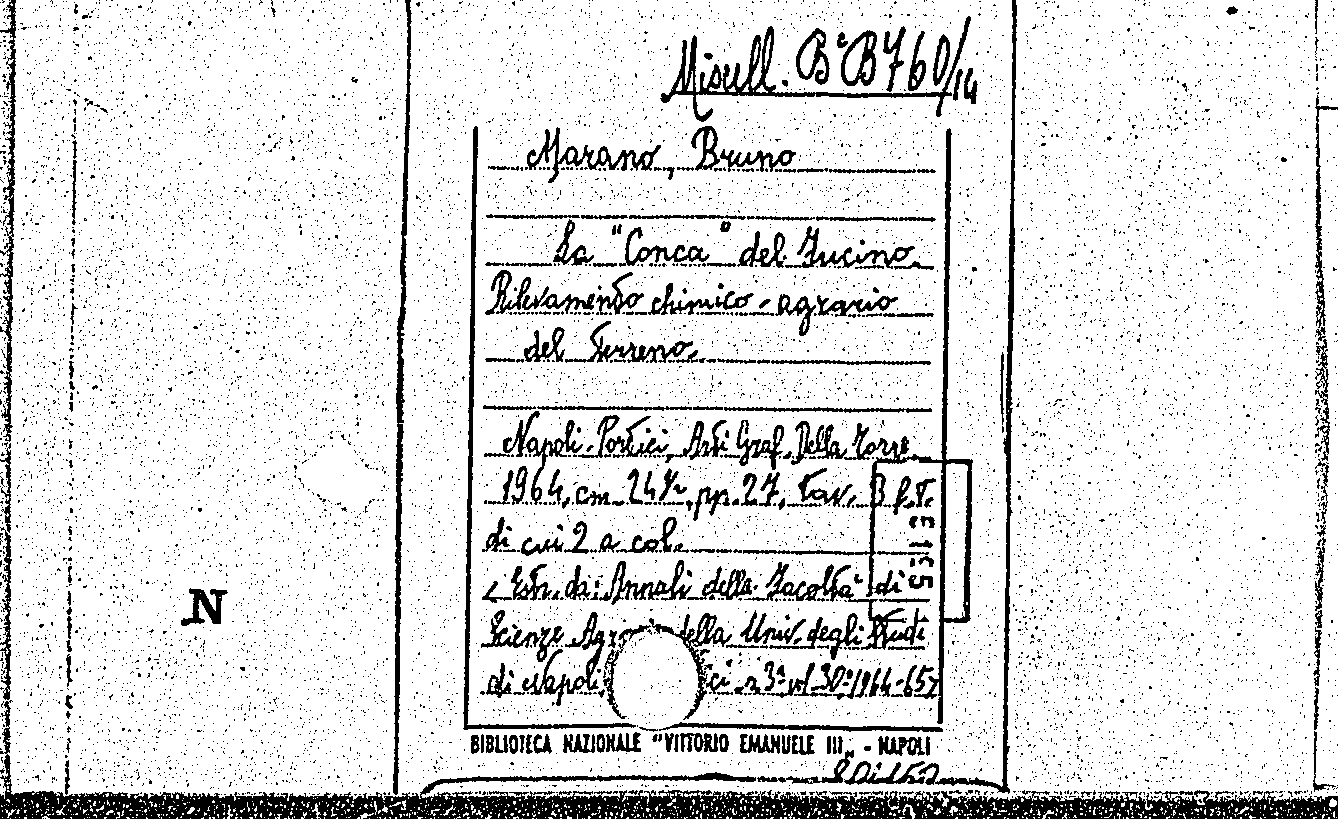 Miscell. Bᵃ B760/14
Marano, Bruno
La "Conca" del Fucino.
Rilevamento chimico-agrario
del terreno.
Napoli-Portici, Arti Graf. Della Torre
1964, cm. 24½, pp. 27, tav. 3 f.t.
di cui 2 a col.
< Estr. da: Annali della Facoltà di
N
Scienze della Univ. degli Studi
di Napoli, s. 3ª vol. 30º 1964-65>
BIBLIOTECA NAZIONALE "VITTORIO EMANUELE III„ - NAPOLI